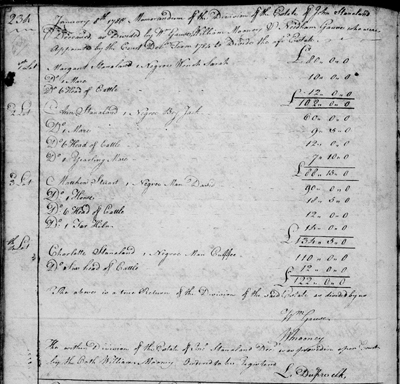 234
January 8th 1785 Memorandum of the Division of the Estate of John Stanaland
Deceased as Divided by Wm Gause William Mooney & Needham Gause who were
Appointed by the Court Term to Divide the sd Estate
1st Lot Margaret Stanaland 1 Negroe Wench Sarah £80-0-0
Do 1 Mare 10-0-0
Do 6 Head of Cattle 12-0-0
£102-0-0
2 Lot John Stanaland 1 Negroe Boy Jack 60-0-0
Do 1 Mare
Do 6 Head of Cattle 12-0-0
Do 1 Yearling Mare 7-10-0
£88-15-0
3 Lot Matthew 1 Negroe Man David 90-0-0
Do 1 Horse
Do 6 Head of Cattle 12-0-0
Do 1
£134-5-0
4th Lot Charlotte Stanaland 1 Negroe Man Cuffee 110-0-0
Do Six head of Cattle £12-0-0
£122-0-0
The above is a true Return of the Division of the Said Estate as divided by us
Wm Gause
Mooney
The within Division of the Estate of Jno Stanaland Decd was proved in open Court
by the Oath William Mooney Ordered to be Registered
L. Dupree Clk